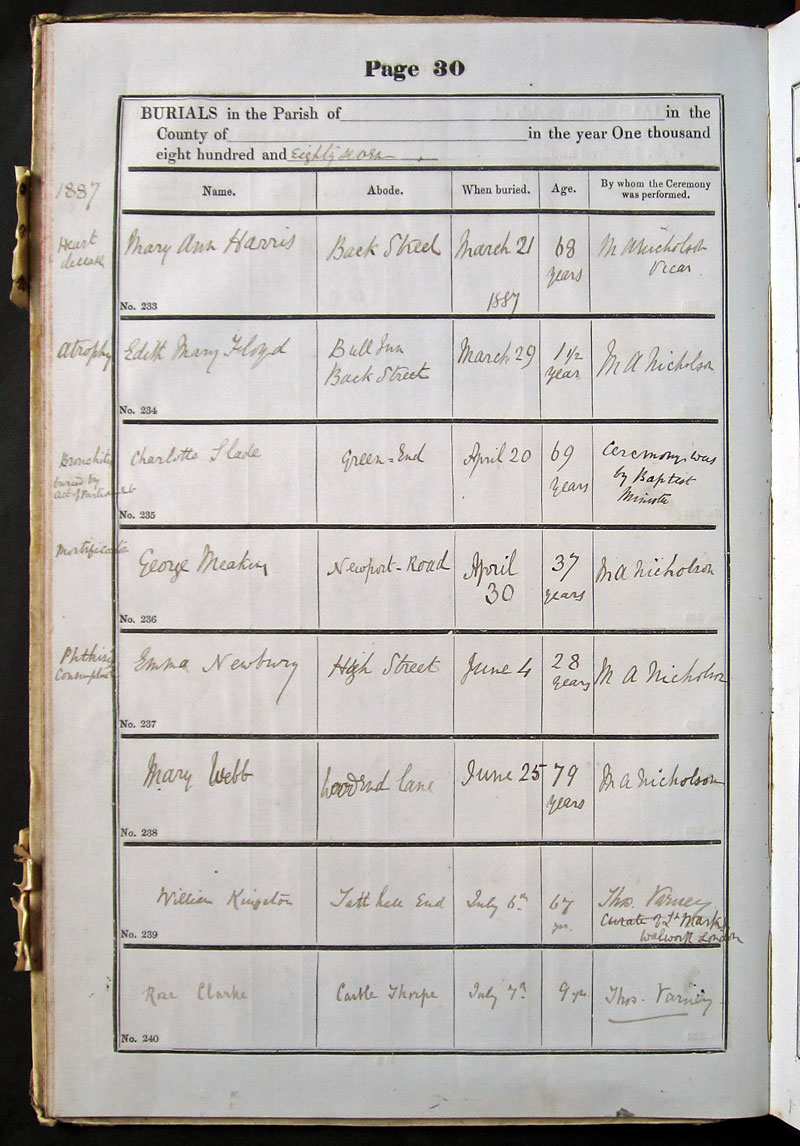 Page 30
BURIALS in the Parish of in the
County of in the year One thousand
eight hundred and Eighty seven
1887
Name. Abode. When buried. Age. By whom the Ceremony
was performed.
Heart
disease
Mary Ann Harris Back Street March 21 68 M A Nicholson
years Vicar
1887
No. 233
Atrophy
Edith Mary Floyd Bull Inn March 29 1 1/2 M A Nicholson
Back Street year
No. 234
Bronchitis
buried by
Act of
Charlotte Slade Green=End April 20 69 Ceremony was
years by Baptist
Minister
No. 235
George Meakins Newport-Road April 37 M A Nicholson
30 years
No. 236
Phthisis
Emma Newbury High Street June 4 28 M A Nicholson
years
No. 237
Mary Webb Woodend lane June 25 79 M A Nicholson
years
No. 238
William Kingston Tatt hell End July 6th 67 Thos. Varney
yrs. Curate of St Marks
Walworth London
No. 239
Rose Clarke Castle Thorpe July 7th 9 yrs Thos. Varney
No. 240